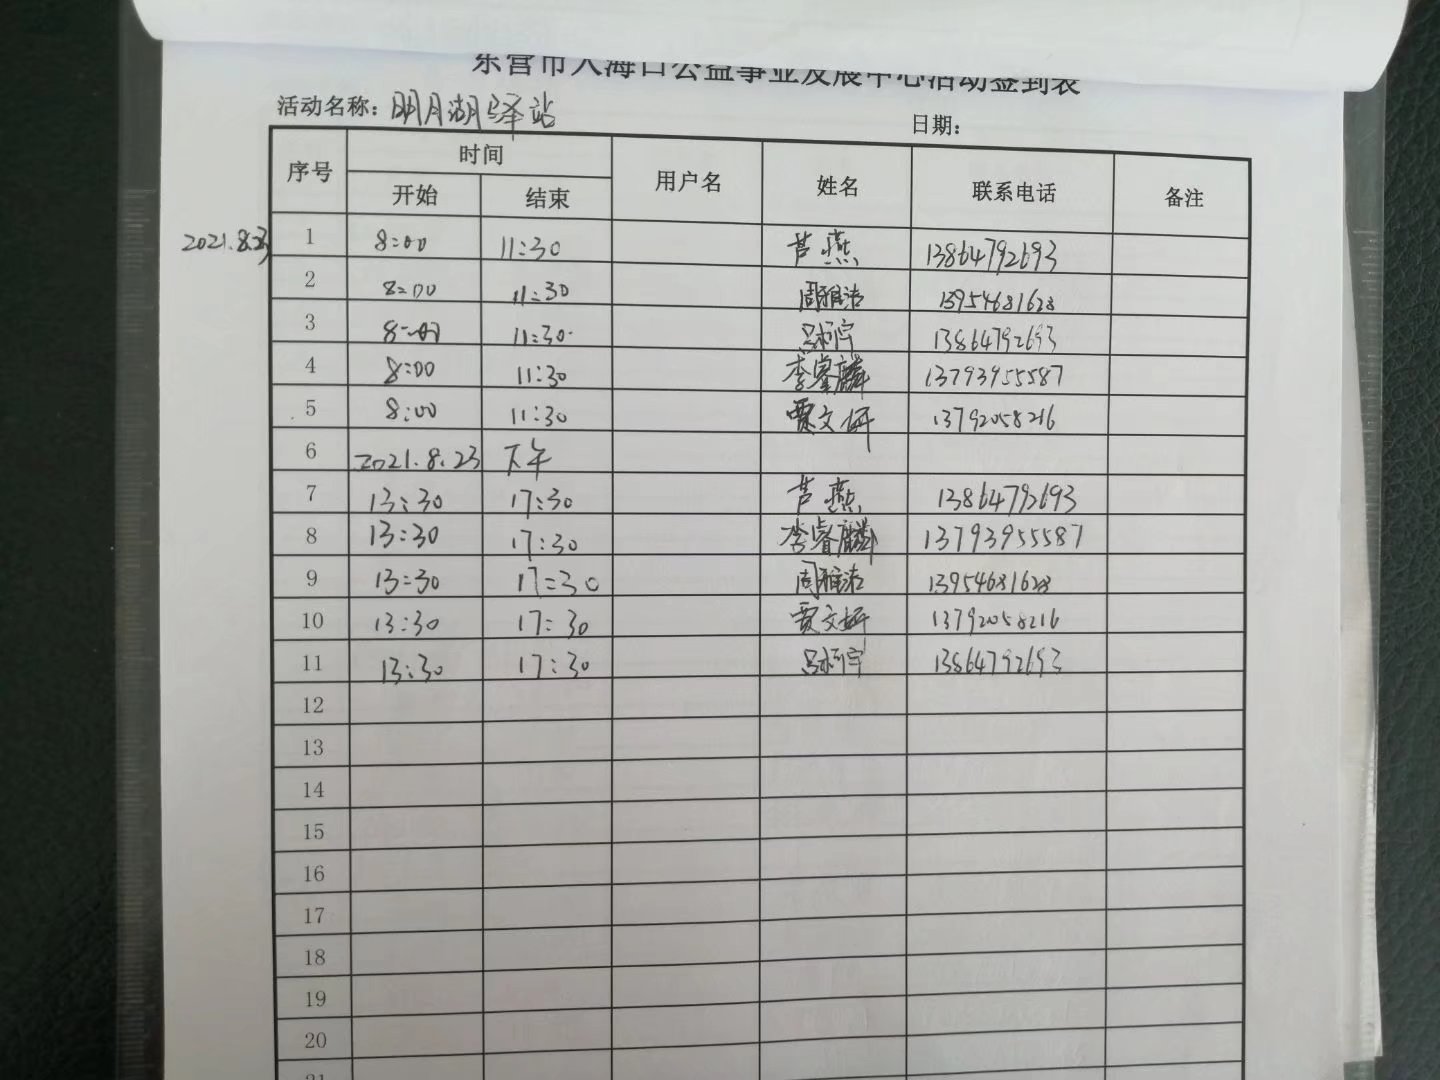 东营市入海口公益事业发展中心活动签到表
活动名称：明月湖驿站 日期：
序号 时间 用户名 姓名 联系电话 备注
开始 结束
2021.8.23 1 8:00 11:30 芦燕 13864792693
2 8:00 11:30 周雅洁 13954681628
3 8:00 11:30 吕 宇 13864792693
4 8:00 11:30 李睿麟 13793955587
5 8:00 11:30 贾文妍 13792058216
6 2021.8.23 下午
7 13:30 17:30 芦燕 13864792693
8 13:30 17:30 李睿麟 13793955587
9 13:30 17:30 周雅洁 13954681628
10 13:30 17:30 贾文妍 13792058216
11 13:30 17:30 吕 宇 13864792693
12
13
14
15
16
17
18
19
20
21